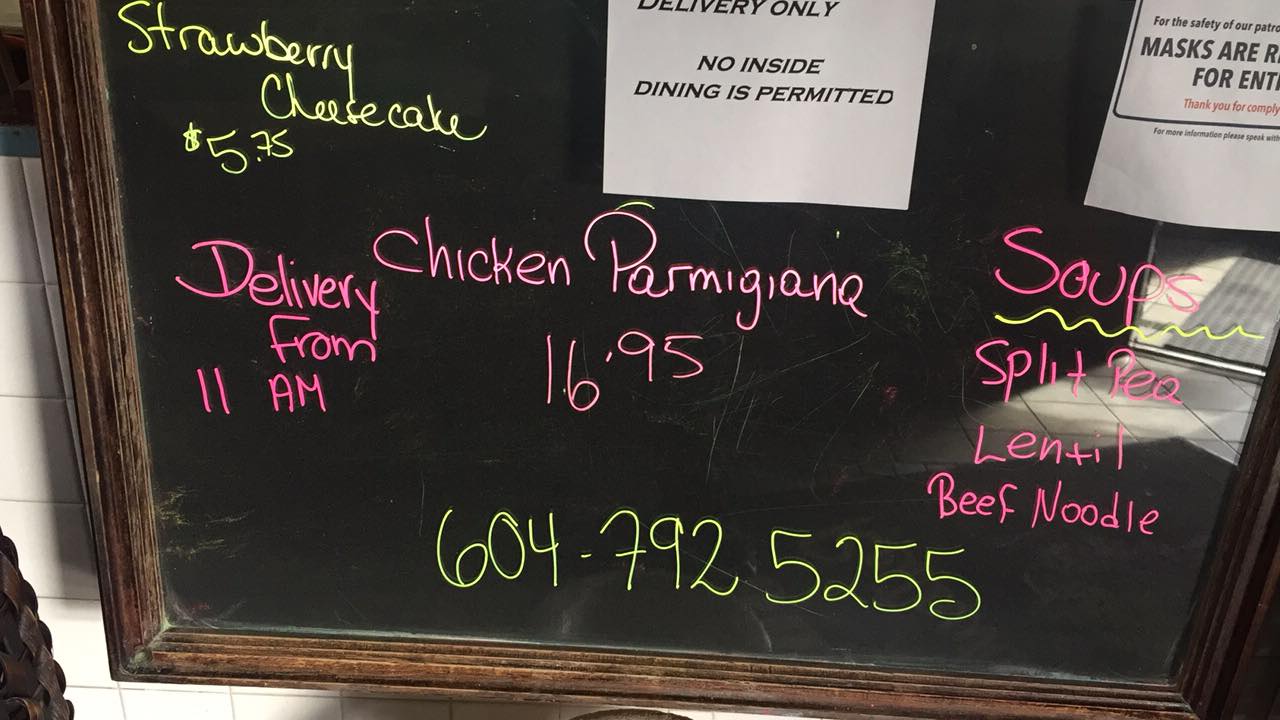 Strawberry
Cheesecake
$5.75
DELIVERY ONLY
NO INSIDE
DINING IS PERMITTED
For the safety of our
MASKS ARE
FOR
Thank you for
For more information please speak with
Delivery
From
11 AM
Chicken Parmigiana
16.95
Soups
Split Pea
Lentil
Beef Noodle
604-792 5255